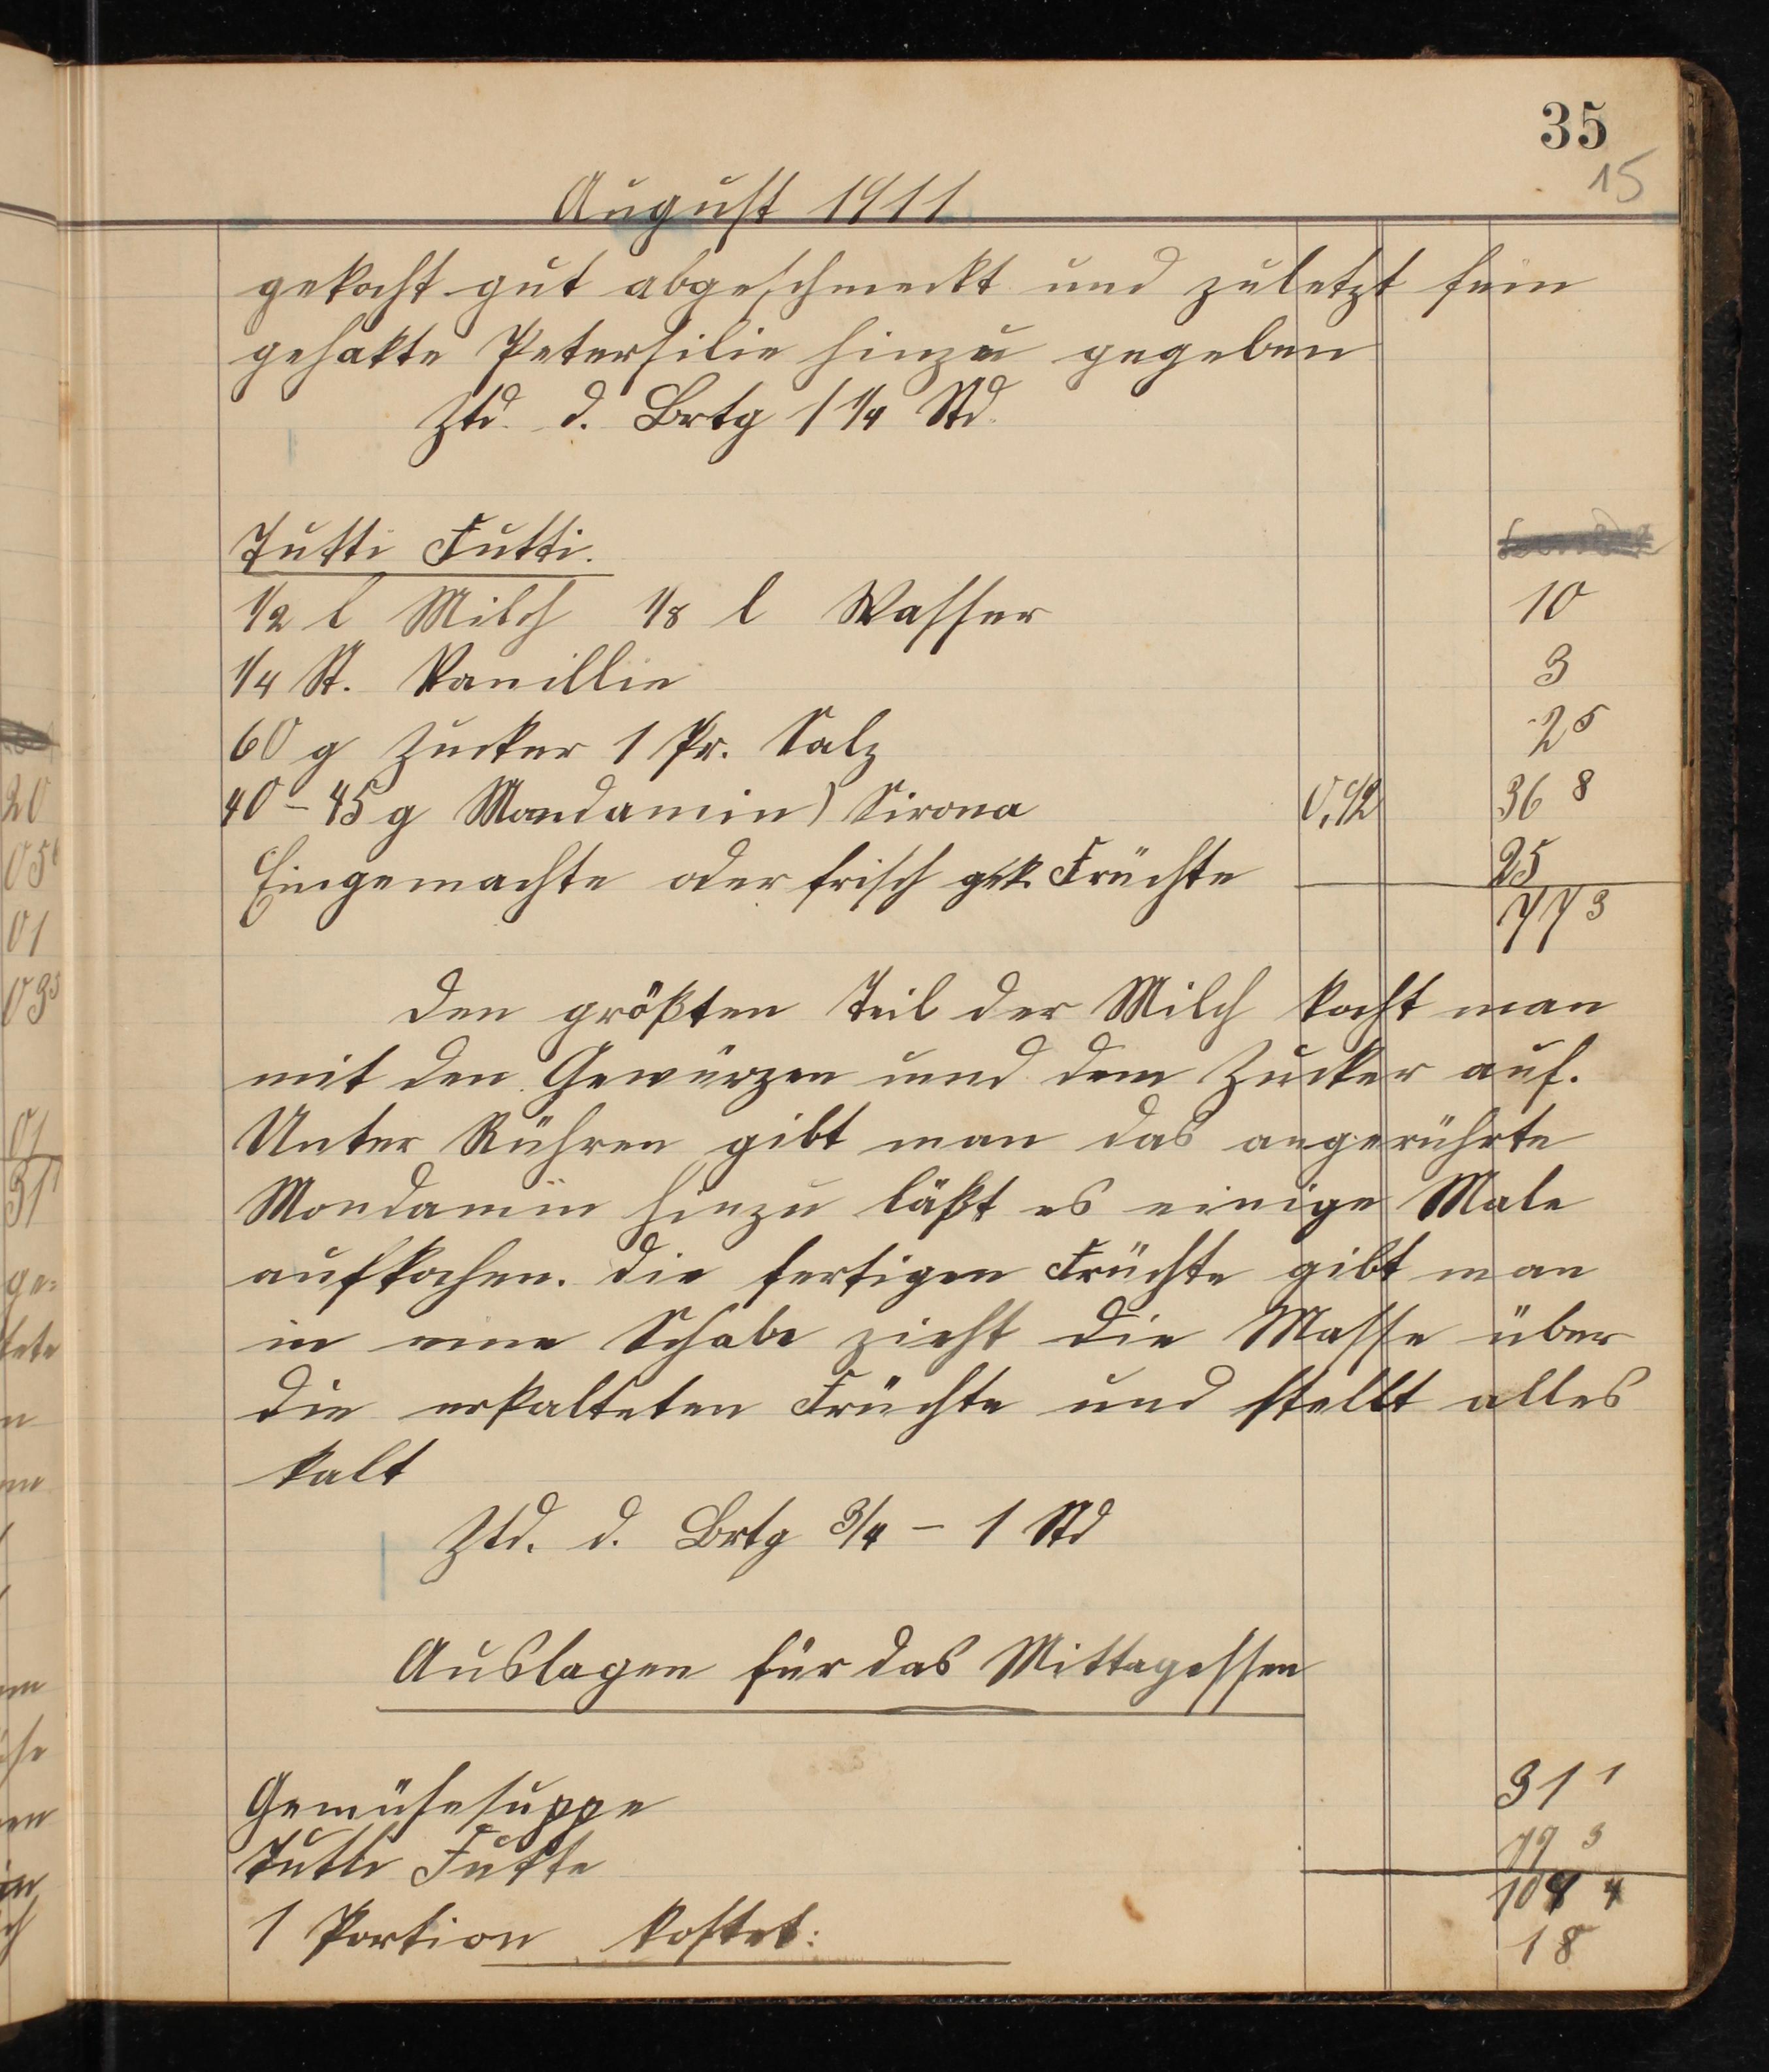 35
15
August 1911
gekocht gut abgeschmeckt und zuletzt fein
gehakte Petersilie hinzu gegeben
Ztd. d. Brtg 1 1/4 Std.
Tutti Futti.
1/2 l Milch 1/8 l Wasser 10
1/4 St. Vanillin 3
60 g Zucker 1 Pr. Salz 2 5
40 - 45 g Mondamin) Sirona 36 8
Eingemachte oder frisch gek. Früchte 25
77 3
Den größten Teil der Milch kocht man
mit den Gewürzen und dem Zucker auf.
Unter Rühren gibt man das angerührte
Mondamin hinzu läßt es einige Male
aufkochen. Die fertigen Früchte gibt man
in eine Schale zieht die Masse über
die erkalteten Früchte und stellt alles
kalt
Ztd. d. Brtg 3/4 - 1 Std
Auslagen für das Mittagessen
Gemüsesuppe 31 1
Tutti Futte 77 3
108 4
1 Portion kostet: 18
20
05
01
03 5
01
31 1
ge=